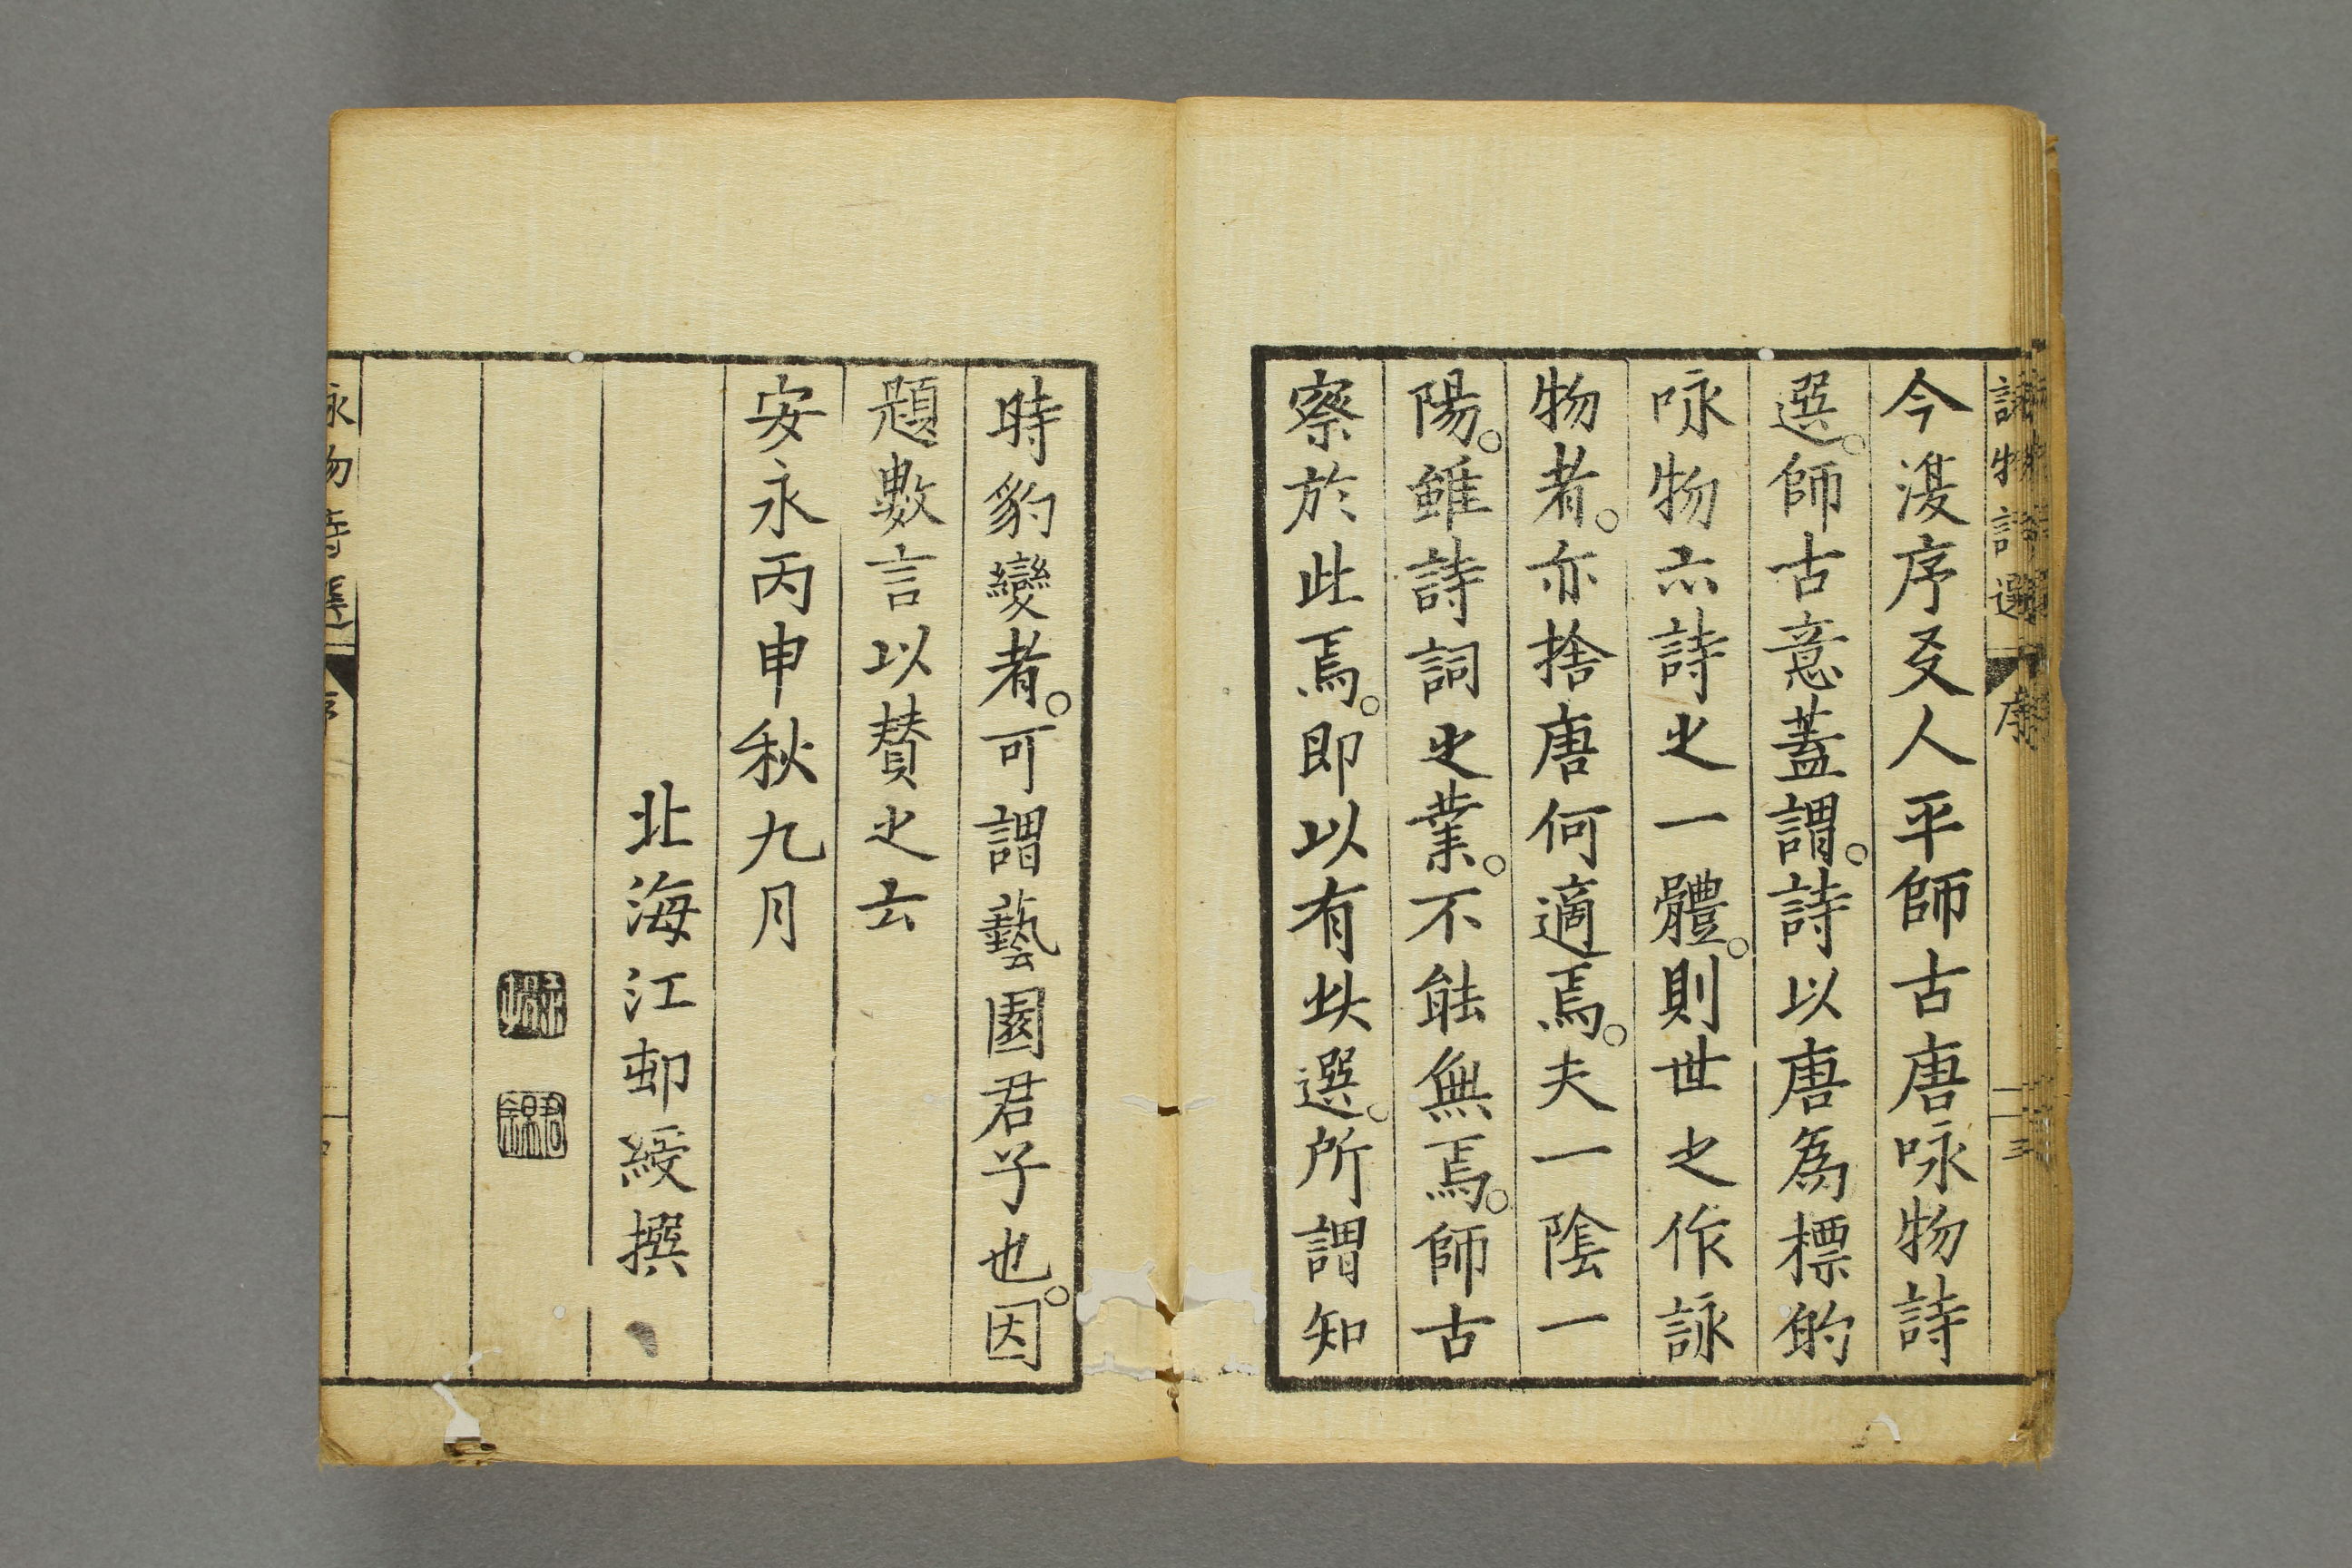 詠物詩選 序 三
今復序友人平師古唐咏物詩
選。師古意蓋謂。詩以唐為標的
咏物亦詩之一體。則世之作詠
物者。亦捨唐何適焉。夫一陰一
陽。雖詩詞之業。不能無焉。師古
察於此焉。即以有此選。所謂知
時豹變者。可謂藝園君子也。因
題數言以賛之云
安永丙申秋九月
北海江邨綬撰
君錦
詠物詩選 序